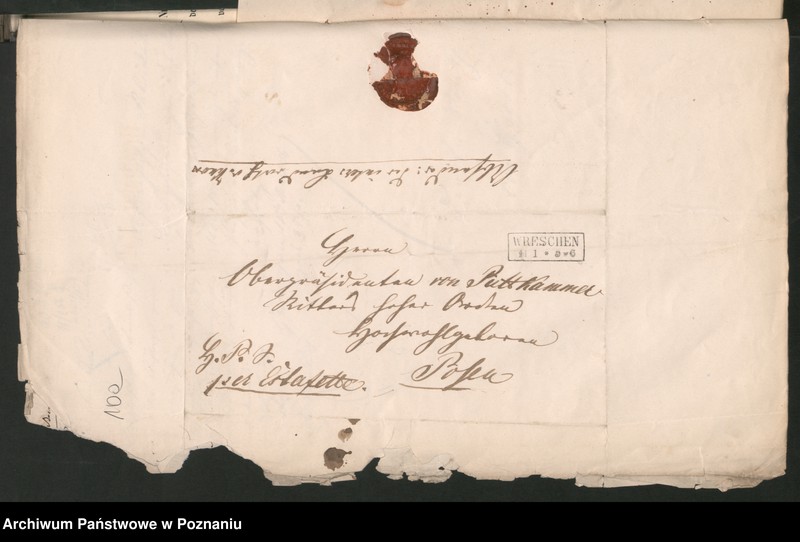 Absender: der interim. Landrath
WRESCHEN
11 1 * 5-6
Herrn
Oberpräsidenten von Puttkammer
Ritter hoher Orden
Hochwohlgeboren
H. P. S.
per Estafette.
Posen
100
Archiwum Państwowe w Poznaniu